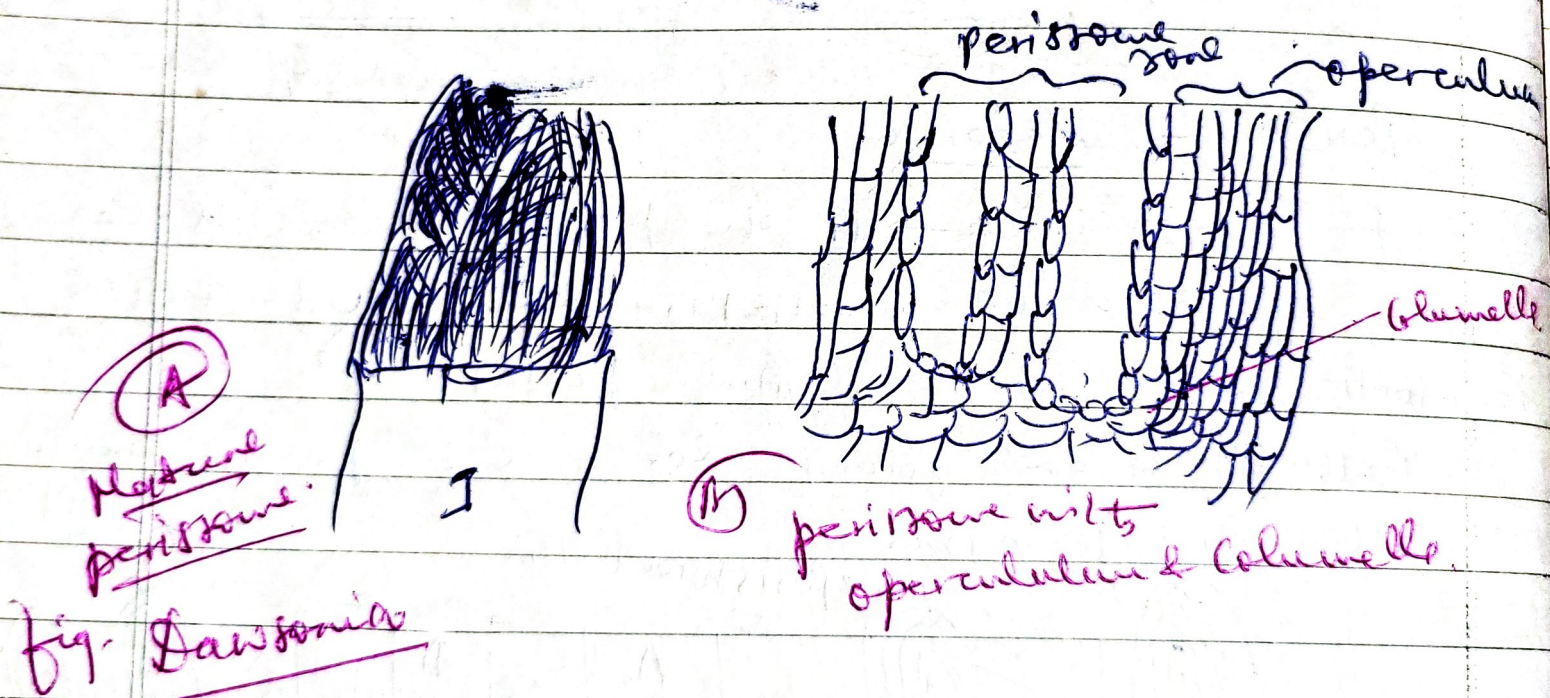 peristome
zone
operculum
columella
A
Mature
peristome.
I
B
peristome with
opercululum & Columella.
fig. Dawsonia